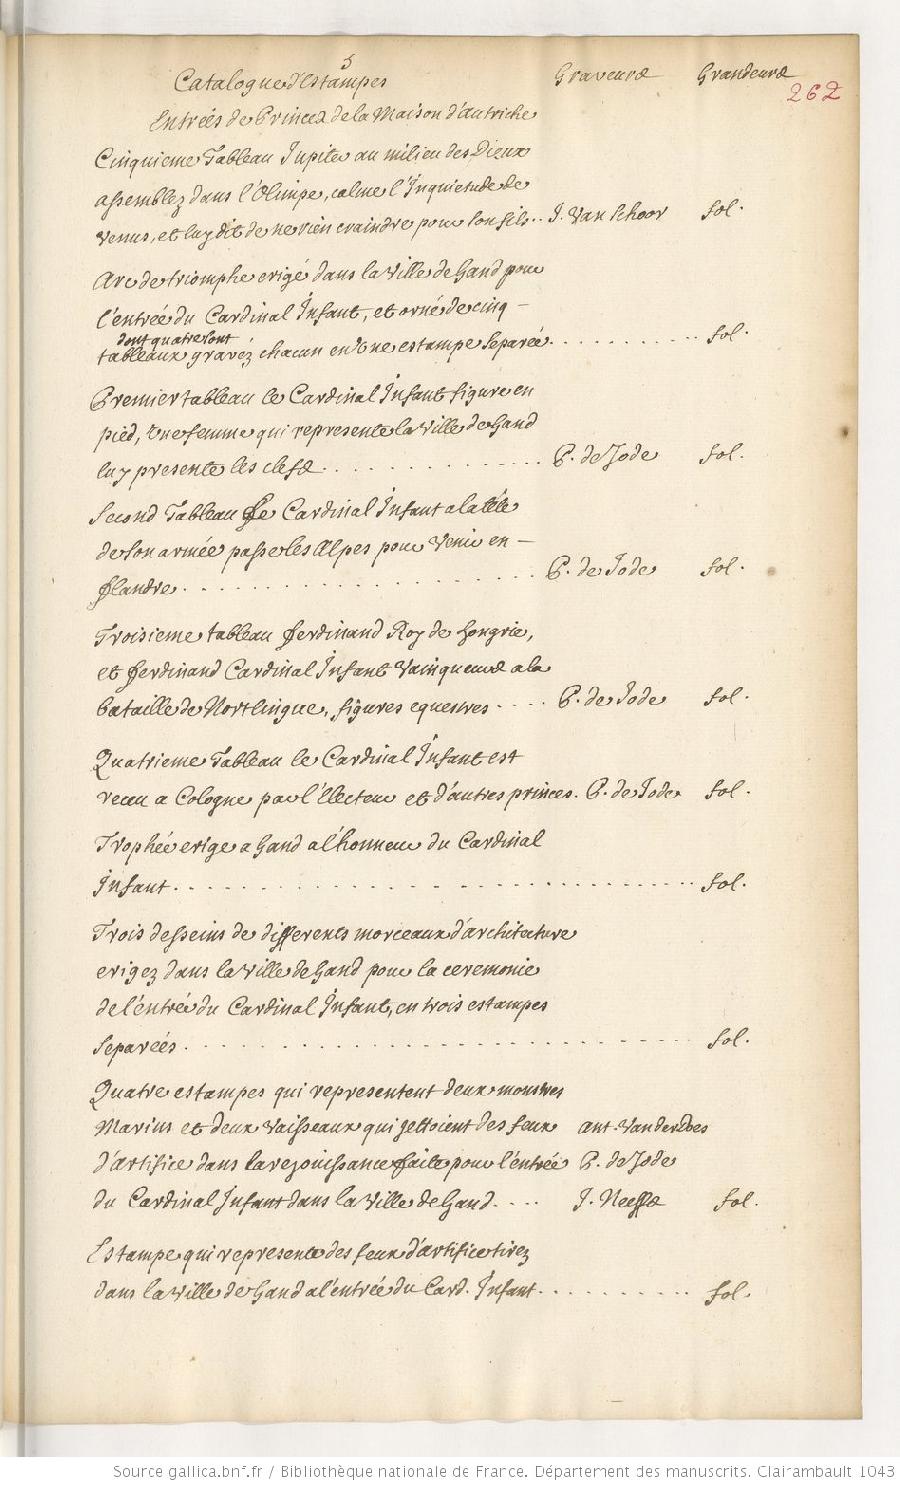 5
Catalogue d'Estampes Graveurs Grandeurs
262
Entrées de Princes de la Maison d'autriche
Cinquieme Tableau Jupiter au milieu des Dieux
assemblez dans l'Olimpe, calme l'Inquietude de
Venus, et luy dit de ne rien craindre pour son fils.. J. Van Schoor fol.
Arc de triomphe erigé dans la Ville de Gand pour
l'entrée du Cardinal Infant, et orné de cinq -
dont quatre sont
tableaux gravéz chacun en Une estampe Separée. . . . . . . . . . . fol.
Premier tableau le Cardinal Infant figure en
pied, Une femme qui represente la Ville de Gand
luy presente les clefs . . . . . . . . . . . . P. de Jode fol.
Second Tableau Le Cardinal Infant a la tête
de son armée passe les Alpes pour Venir en -
flandre . . . . . . . . . . . . . . . . . P. de Jode fol.
Troisieme tableau ferdinand Roy de hongrie,
et ferdinand Cardinal Infant Vainqueurs a la
bataille de Nortlingue, figures equestres . . . . P. de Jode fol.
Quatrieme Tableau le Cardinal Infant est
receu a Cologne par l'Electeur et d'autres princes. P. de Jode fol.
Trophée erige a Gand a l'honneur du Cardinal
Infant . . . . . . . . . . . . . . . . . . . . . . . . . . . . fol.
Trois desseins de differents morceaux d'architecture
erigez dans la Ville de Gand pour la ceremonie
de l'entrée du Cardinal Infant, en trois estampes
Separées . . . . . . . . . . . . . . . . . . . . . . . . . . . fol.
Quatre estampes qui representent deux monstres
Marins et deux Vaisseaux qui jettoient des feux ant. Vanderdoes
d'artifice dans la rejouissance faite pour l'entrée P. de Jode
du Cardinal Infant dans la Ville de Gand. . . . J. Neeffs fol.
Estampe qui represente des feux d'artifice tirez
dans la Ville de Gand a l'entrée du Card. Infant . . . . . . . . . . fol.
Source gallica.bnf.fr / Bibliothèque nationale de France. Département des manuscrits. Clairambault 1043